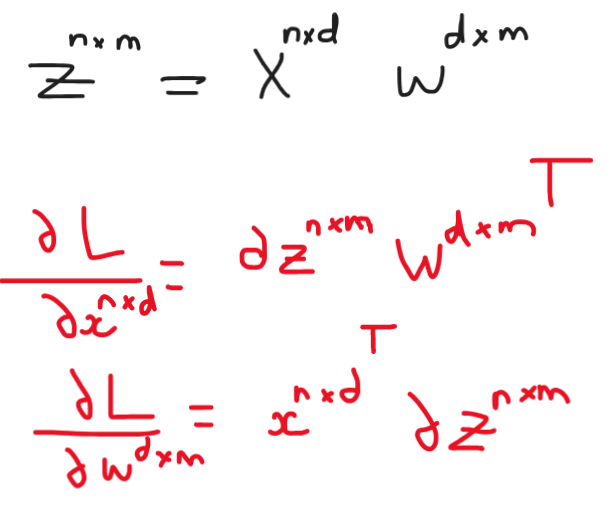 Z^{n×m} = X^{n×d} W^{d×m}
∂L/∂x^{n×d} = ∂z^{n×m} W^{d×m^T}
∂L/∂w^{d×m} = x^{n×d^T} ∂z^{n×m}